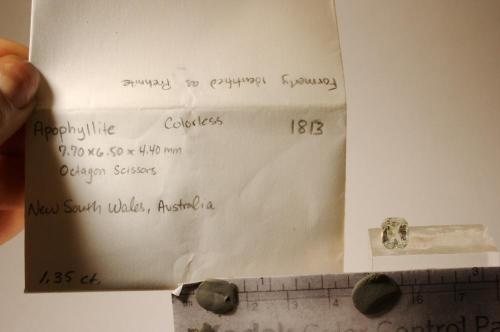 Formerly identified as Prehnite
Apophyllite Colorless 1813
7.70 x 6.50 x 4.40 mm
Octagon Scissors
New South Wales, Australia
1.35 ct.
1 2 3
2 3 4 6 7
Kodak Color Control Pa